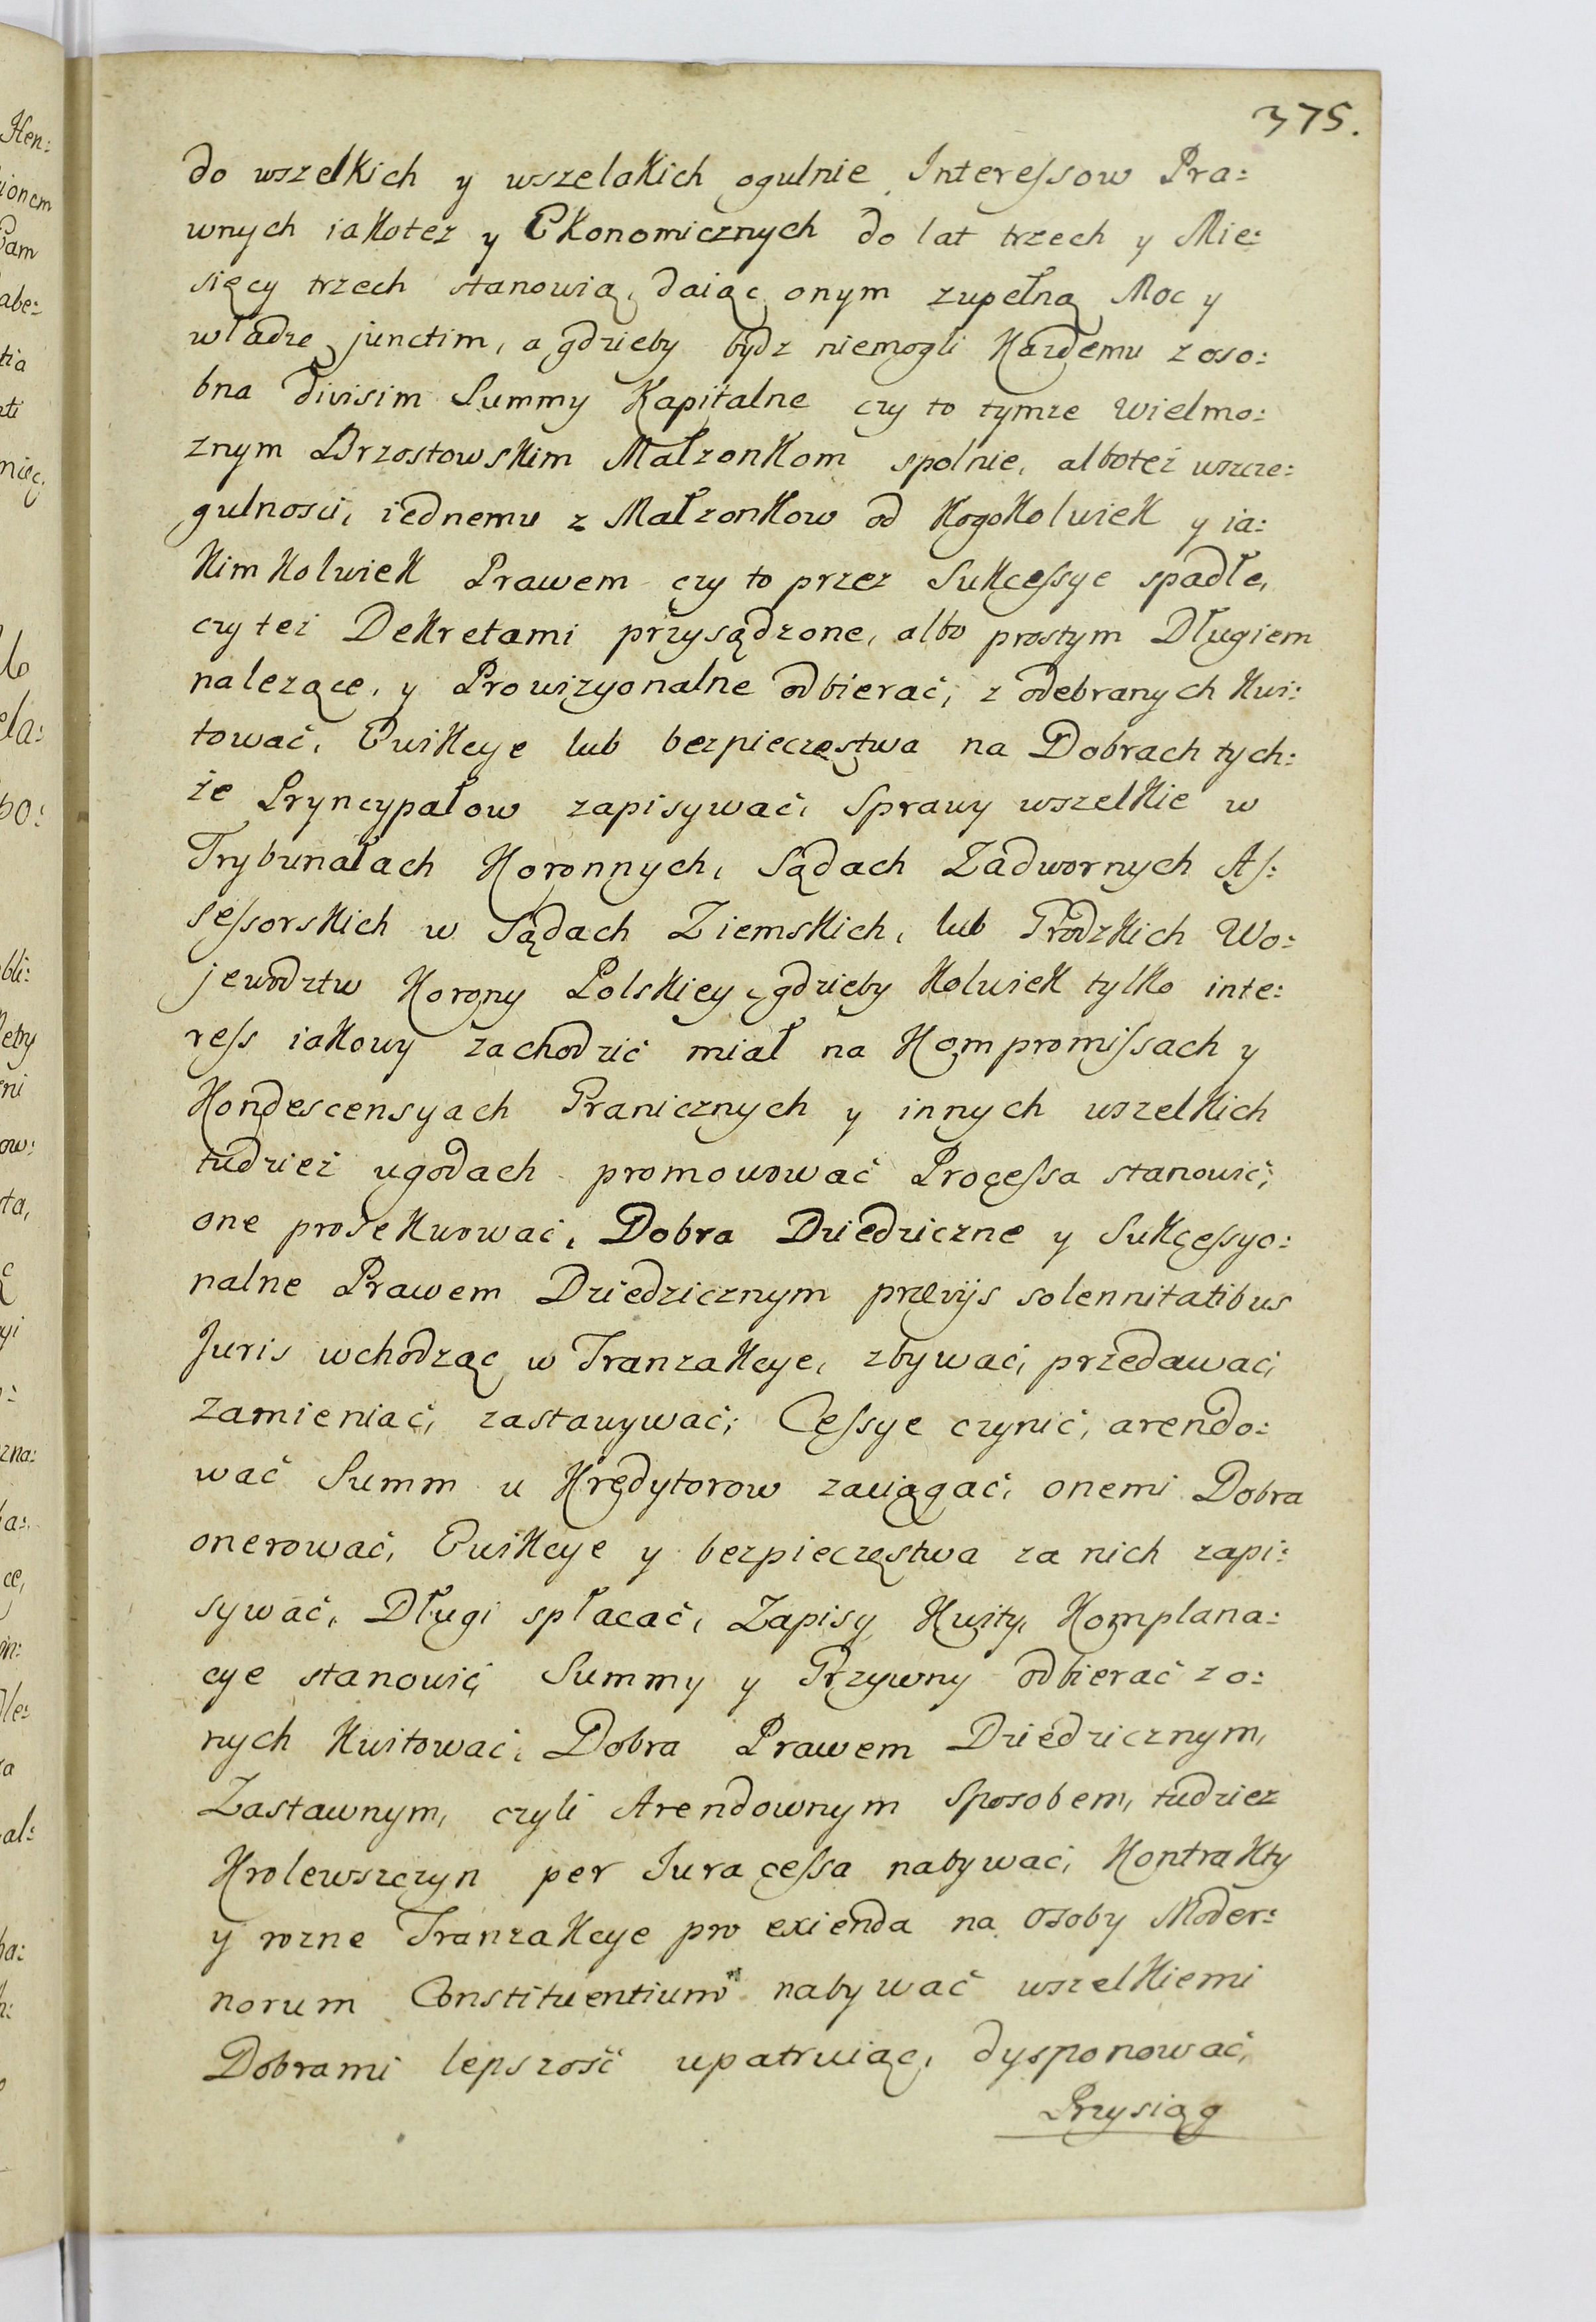 375.
do wszelkich y wszelakich ogulnie Interessow Pra:
wnych iakotez y Ekonomicznych do lat trzech y Mie:
sięcy trzech stanowią, daiąc onym zupełną Moc y
władzę junctim, a gdzieby bydz niemogli Kazdemu z oso:
bna divisim Summy Kapitalne czy to tymze Wielmo:
znym Brzostowskim Małzonkom spolnie, alboteż wszcze:
gulnosci, iednemu z Małzonkow od kogokolwiek y ia:
kimkolwiek Prawem czy to przez Sukcessye spadłe,
czyteż Dekretami przysądzone, albo prostym Długiem
nalezące, y Prowizyonalne odbierać, z odebranych kwi:
tować, Ewikcye lub bezpieczęstwa na Dobrach tych:
że Pryncypałow zapisywać, Sprawy wszelkie w
Trybunałach Koronnych, Sądach Zadwornych As:
sessorskich w Sądach Ziemskich, lub Grodzkich Wo:
jewodztw Korony Polskiey, gdzieby kolwiek tylko inte:
ress iakowy zachodzić miał na Kompromissach y
Kondescensyach Granicznych y innych wszelkich
tudzież ugodach promowować Processa stanowić,
one prosekwować, Dobra Dziedziczne y Sukcessyo:
nalne Prawem Dziedzicznym prævijs solennitatibus
Juris wchodząc w Tranzakcye, zbywać, przedawać,
zamieniać, zastawywać, Cessye czynić, arendo:
wać Summ u Kredytorow zaciągać, onemi Dobra
onerować, Ewikcye y bezpieczęstwa za nich zapi:
sywać, Długi spłacać, Zapisy, Kwity, Komplana:
cye stanowić, Summy y Grzywny odbierać z o:
nych kwitować, Dobra Prawem Dziedzicznym,
Zastawnym, czyli Arendownym sposobem, tudziez
Krolewszczyn per Jura cessa nabywać, Kontrakty
y rozne Tranzakcye pro exienda na osoby Moder:
norum Constituentium nabywać wszelkiemi
Dobrami lepszość upatruiąc, dysponować,
Przysiąg